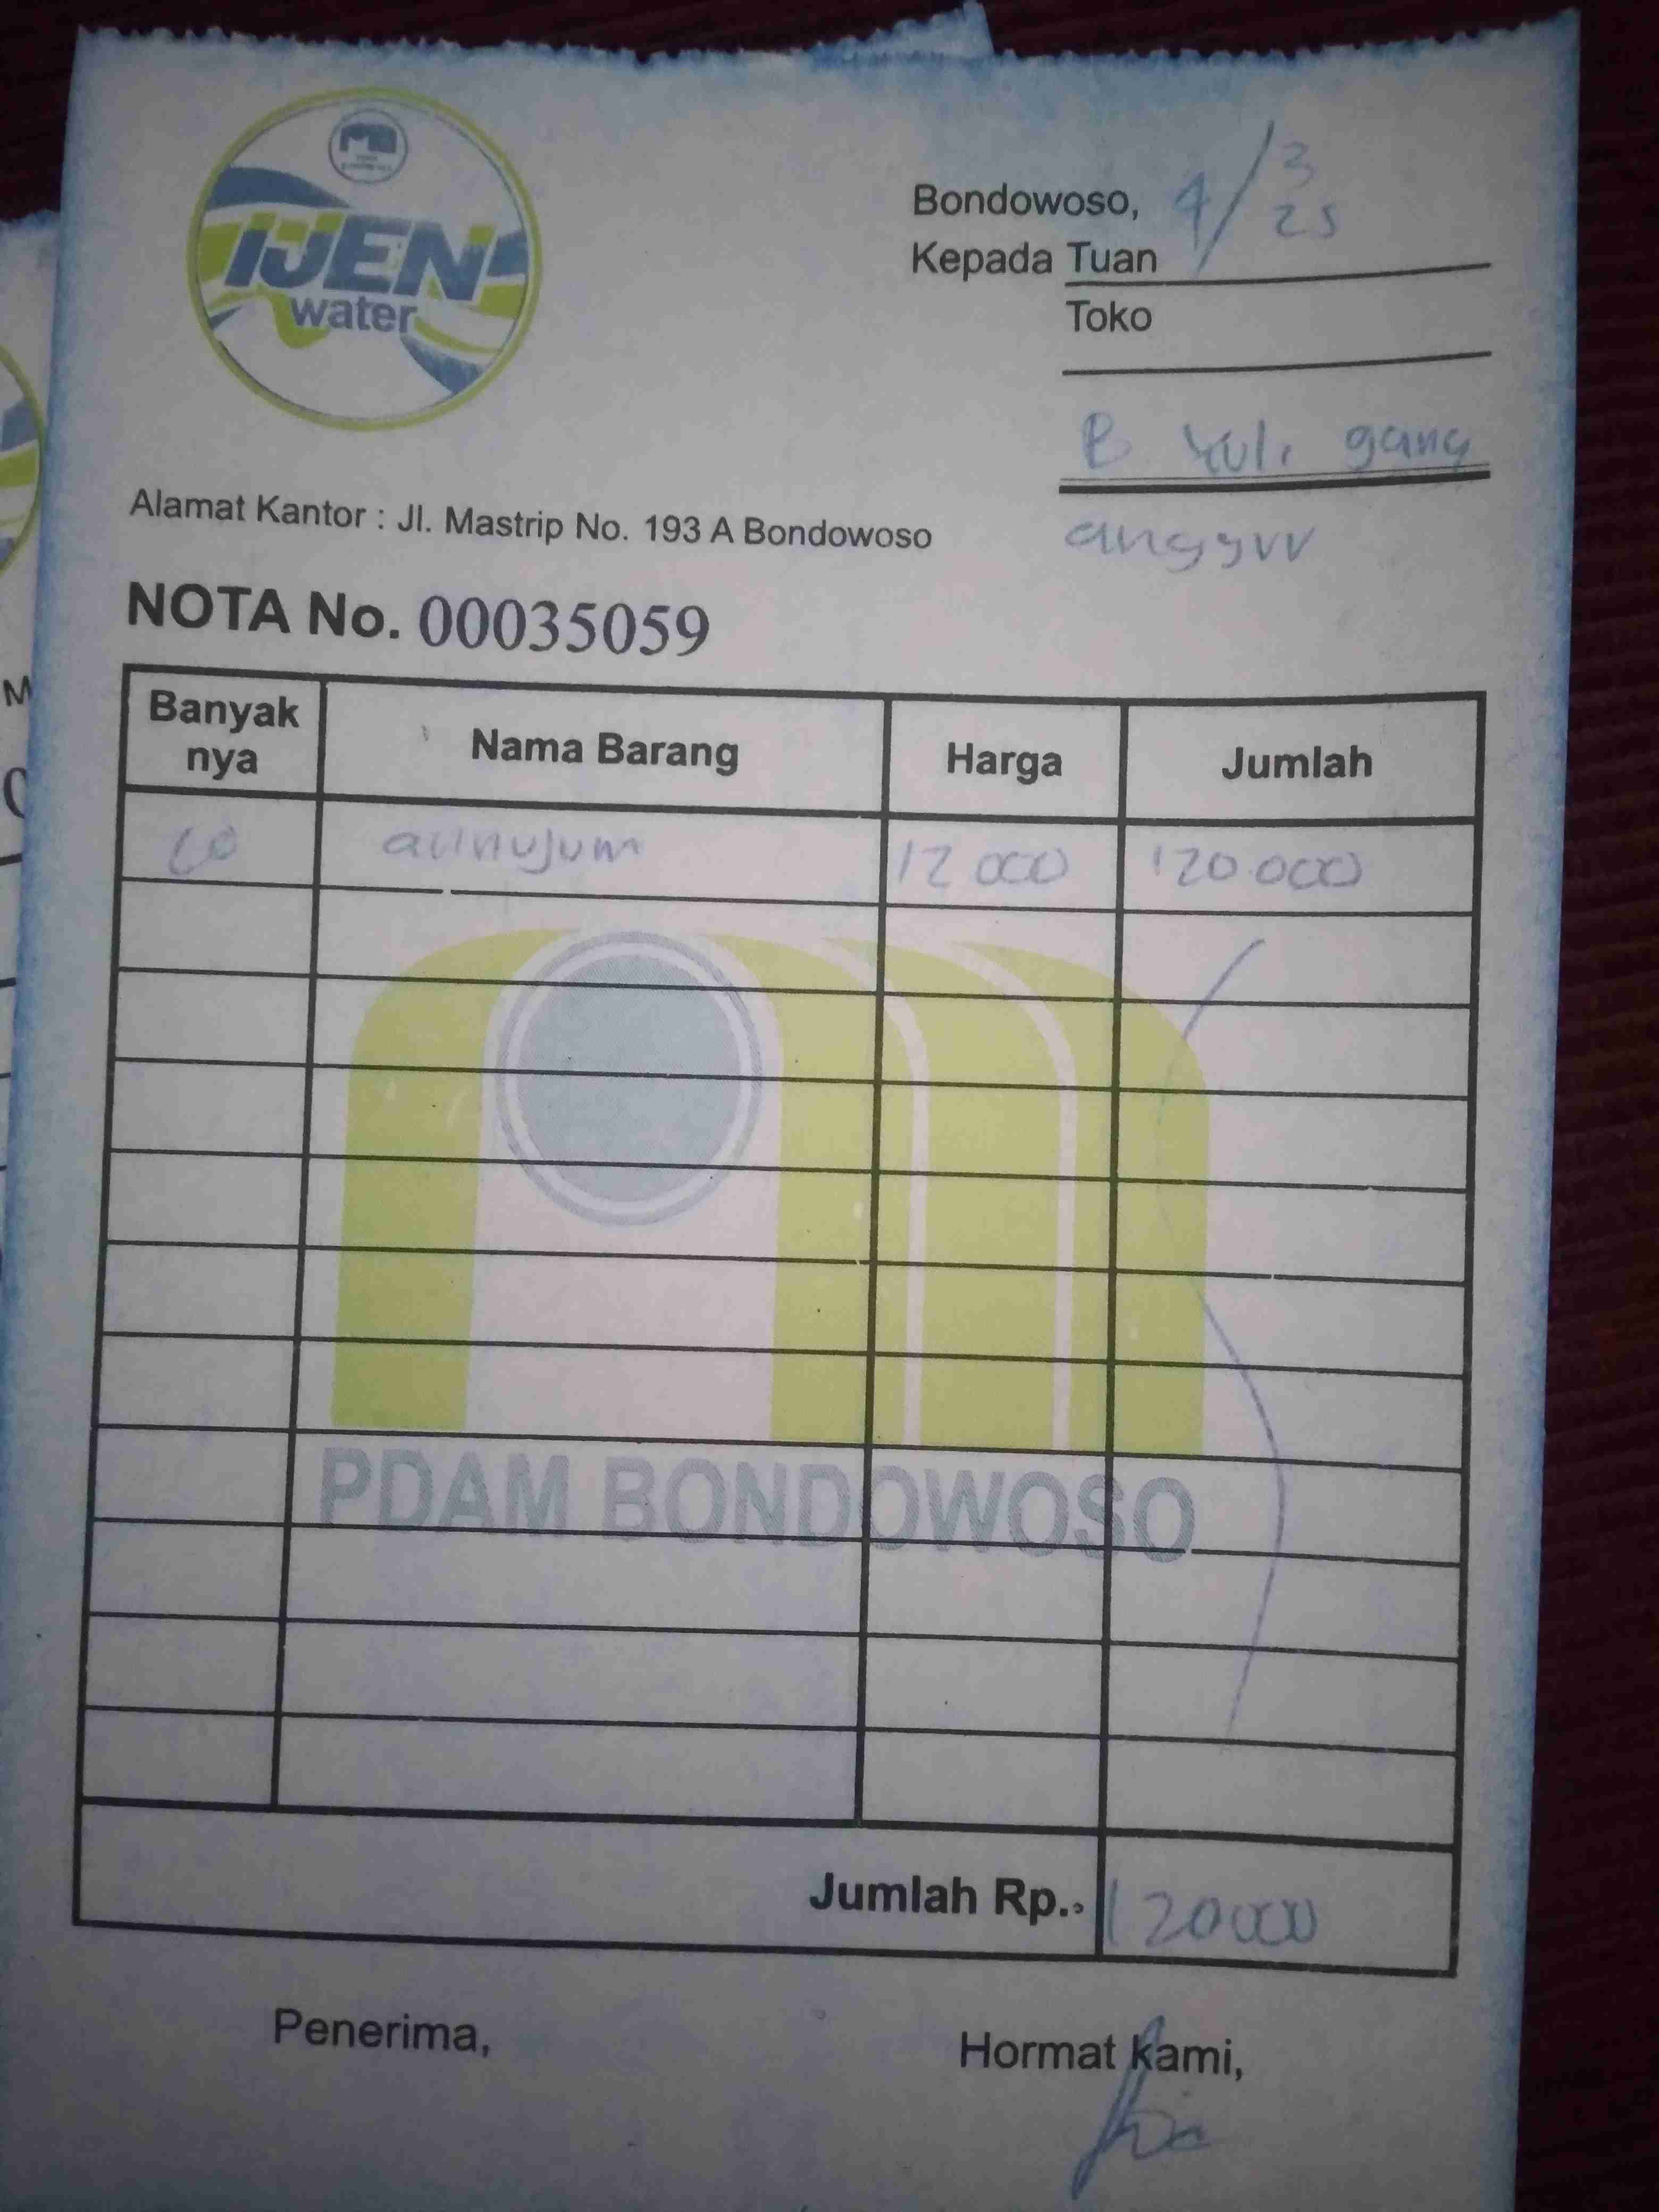 IJEN
water
Bondowoso, 4/3 25
Kepada Tuan
Toko
B yuli gang
anggur
Alamat Kantor : Jl. Mastrip No. 193 A Bondowoso
NOTA No. 00035059
Banyak nya Nama Barang Harga Jumlah
10 12 000 120.000
PDAM BONDOWOSO
Jumlah Rp. 120000
Penerima, Hormat Kami,